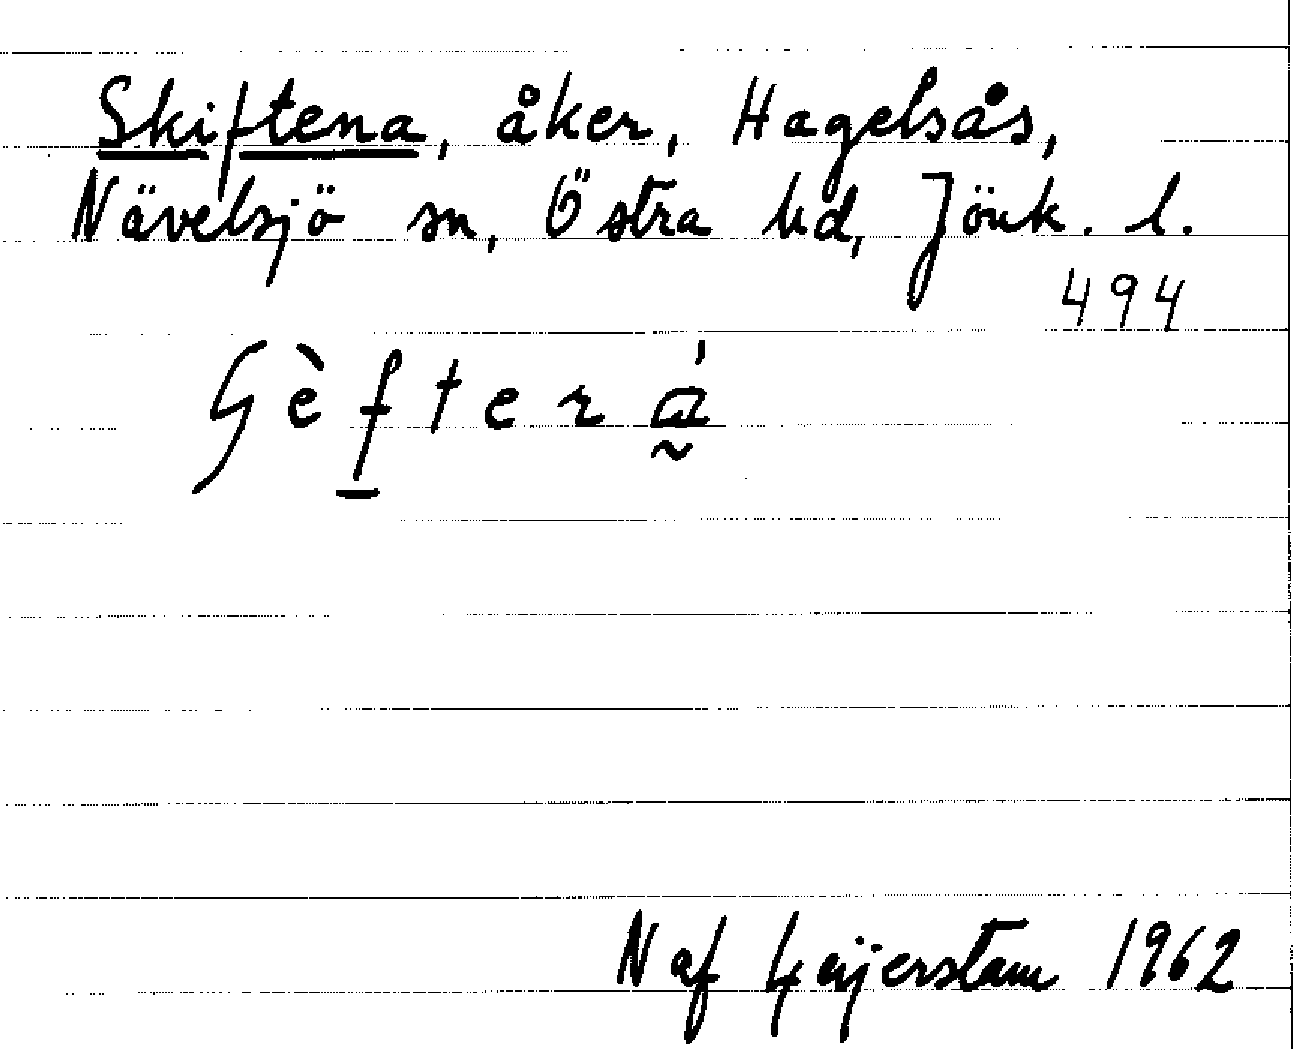 Skiftena, åker, Hagelsås,
Nävelsjö sn, Östra hd, Jönk. l.
494
ʃèf̱terá̰
N af Geijerstam 1962